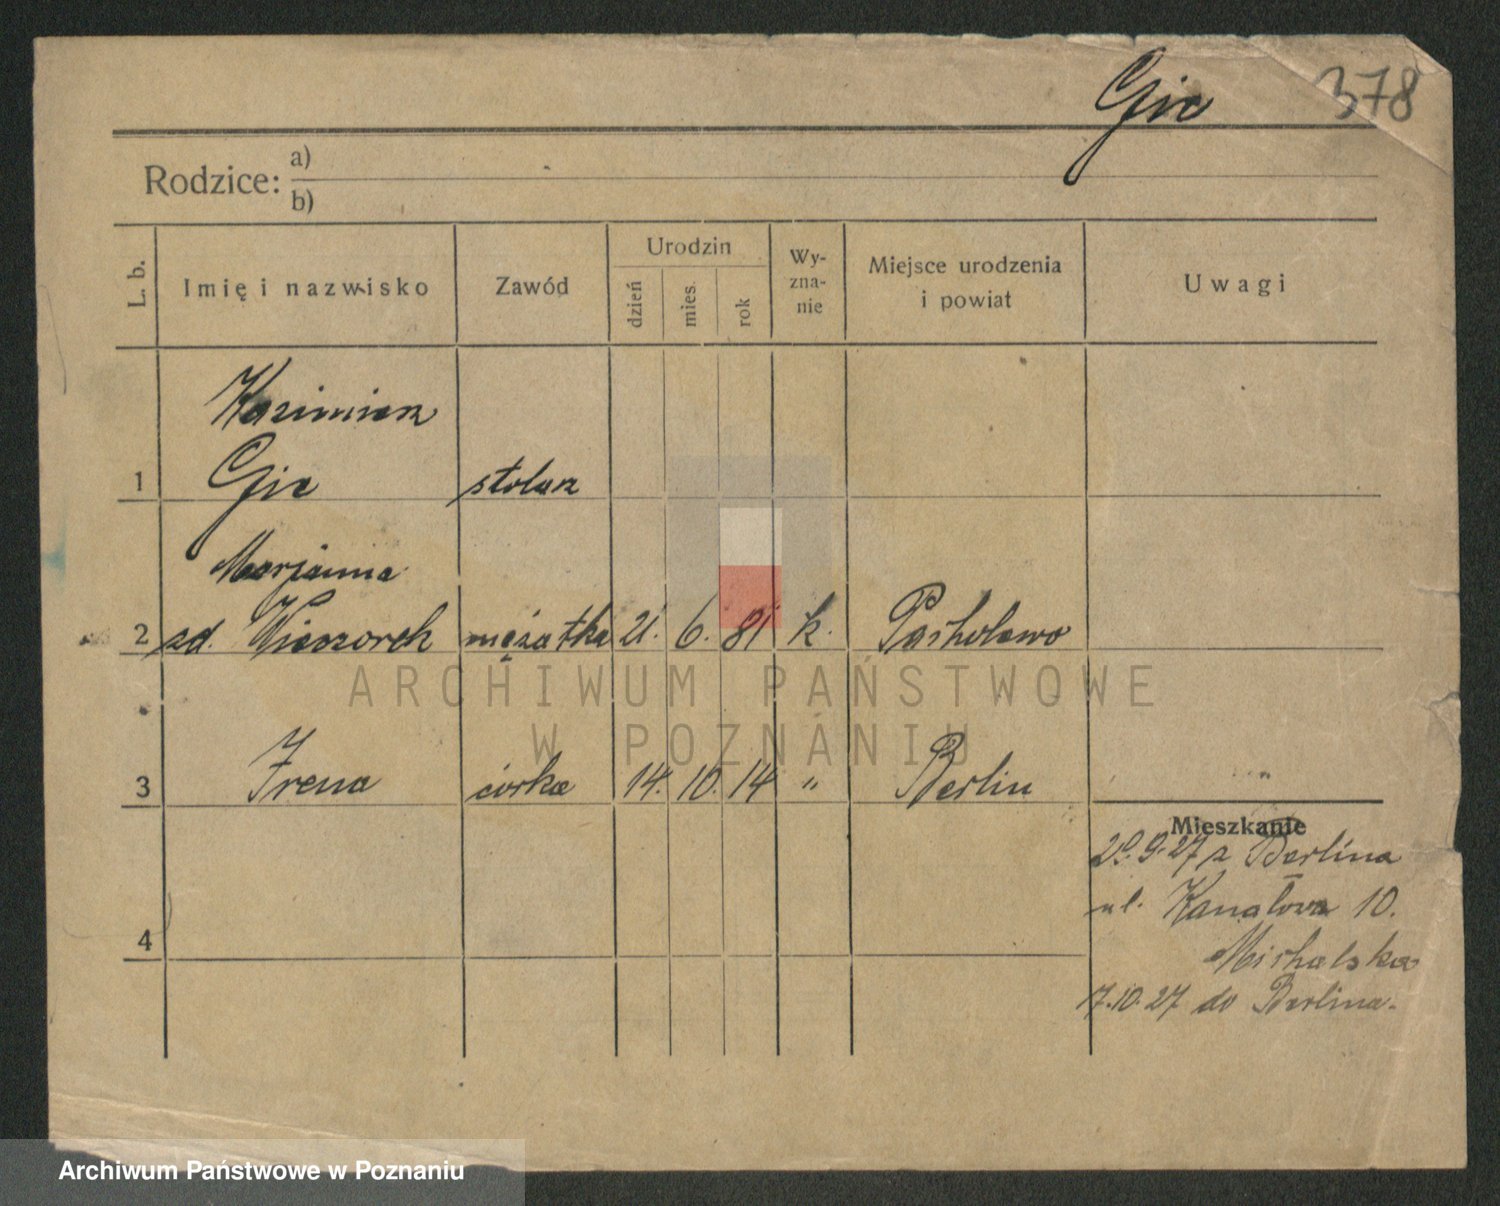 Gic 378
Rodzice: a)
b)
L. b. Imię i nazwisko Zawód Urodzin dzień mies. rok Wy-zna-nie Miejsce urodzenia i powiat Uwagi
Kazimierz
1 Gic stolarz
Marjanna
2 zd. Wieczorek mężatka 21. 6. 81 k.
ARCHIWUM PAŃSTWOWE
W POZNANIU
3 Irena córka 14. 10. 14 " Berlin
Mieszkanie
9.27 z Berlina
ul. Kanałowa 10.
4
Michalska
17.10.27 do Berlina.
Archiwum Państwowe w Poznaniu